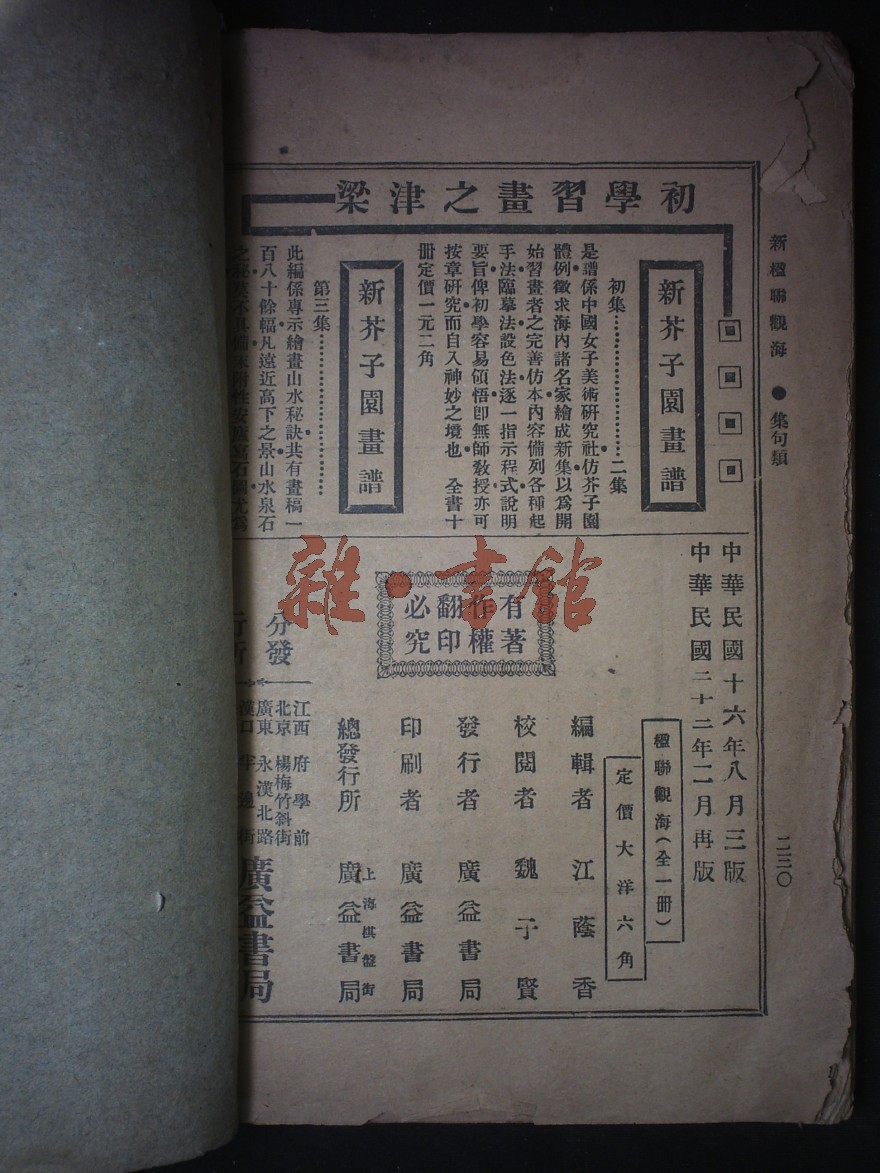 新楹聯觀海 ● 集句類
二三〇
初學習畫之津梁
新芥子園畫譜
初集……二集
是譜係中國女子美術硏究社仿芥子園
體例徵求海內諸名家繪成新集以爲開
始習畫者之完善仿本內容備列各種起
手法臨摹法設色法逐一指示程式說明
要旨俾初學容易領悟卽無師敎授亦可
按章硏究而自入神妙之境也 全書十
册定價一元二角
新芥子園畫譜
第三集……
此編係專示繪畫山水秘訣共有畫稿一
百八十餘幅凡遠近高下之景山水泉石
中華民國十六年八月三版
中華民國二十二年二月再版
楹聯觀海(全一册)
定價大洋六角
有著
作權
翻印
必究
編輯者 江蔭香
校閱者 魏子賢
發行者 廣益書局
印刷者 廣益書局
總發行所 上海棋盤街 廣益書局
分發行所
江西 府學前
北京 楊梅竹斜街
廣東 永漢北路
漢口
廣益書局
雜·書館